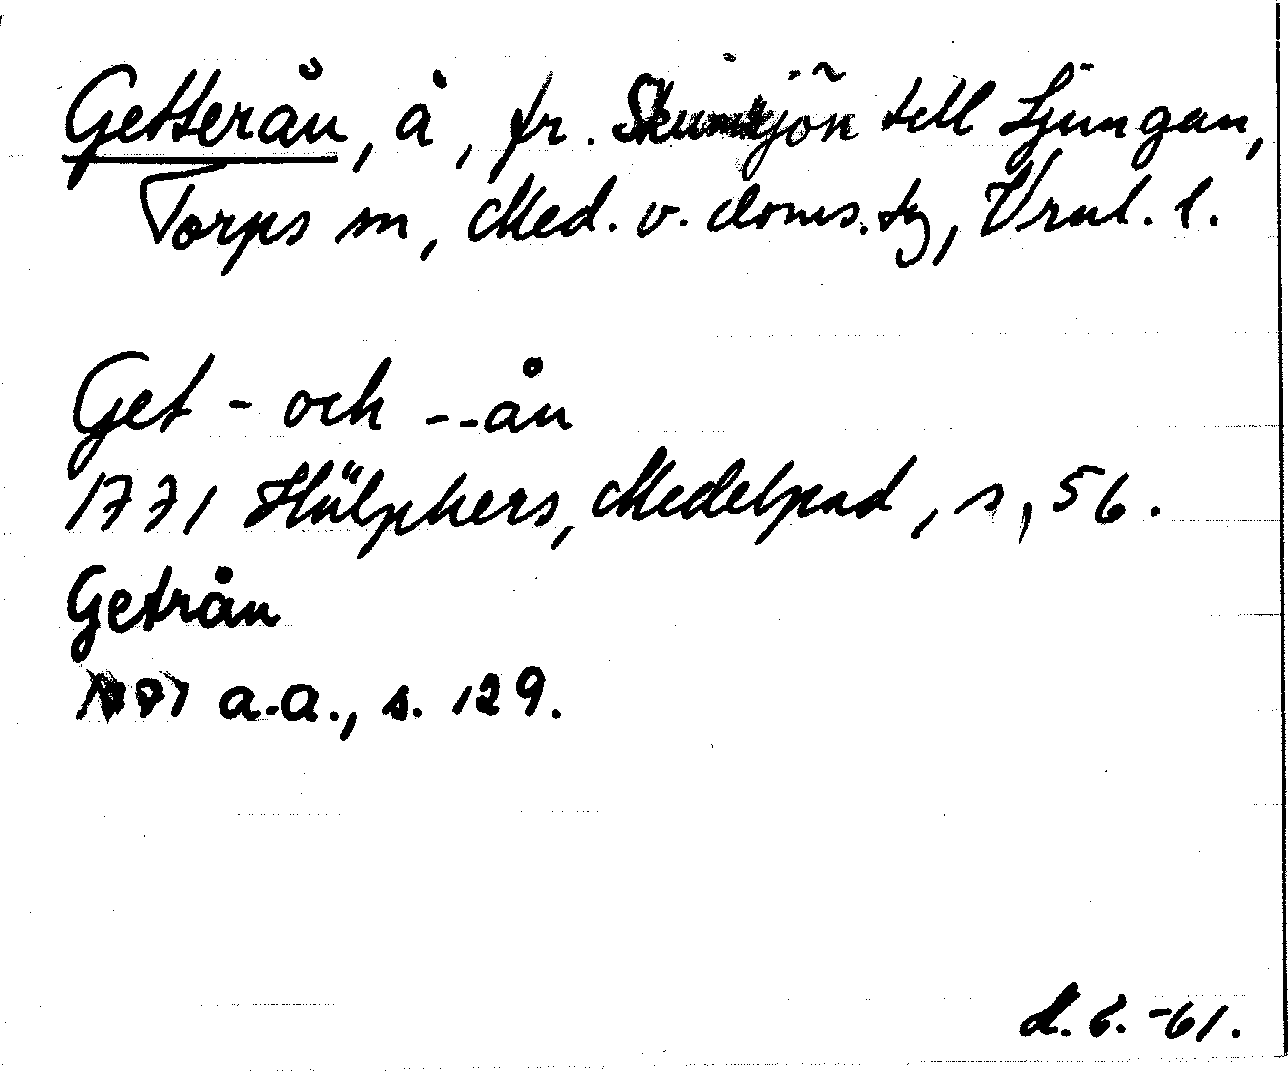 Getterån, å, fr. Skumsjön till Ljungan,
Torps sn, Med. v. doms.tg, Vrnl. l.
Get- och --ån
1771 Hülphers, Medelpad, s, 56.
Geträn
1771 a.a., s. 129.
d. -61.